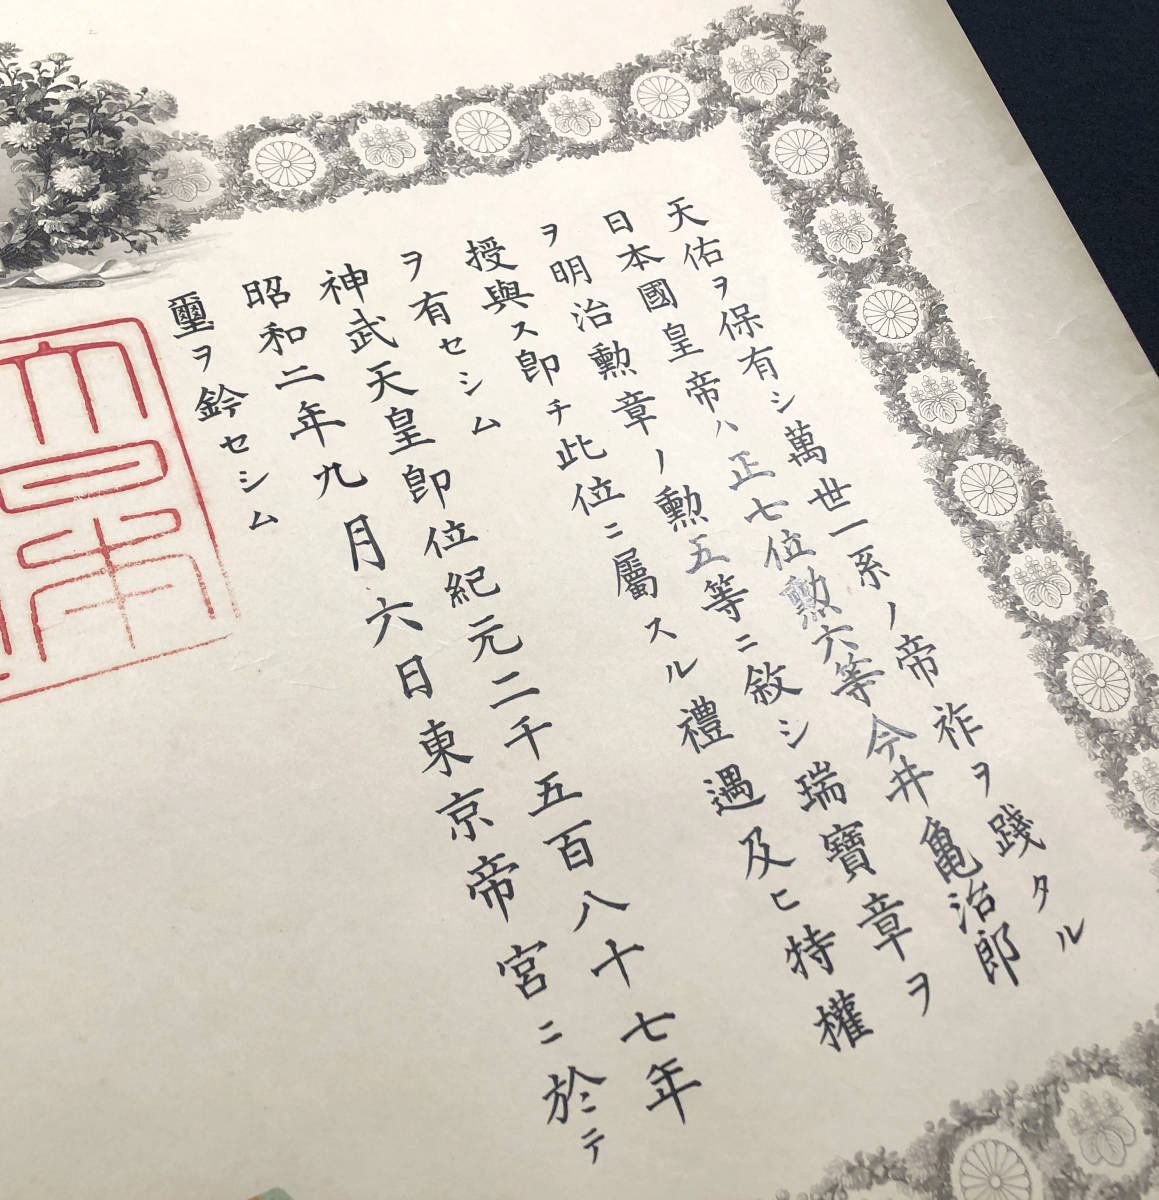 天佑ヲ保有シ萬世一系ノ帝祚ヲ踐タル
日本國皇帝ハ正七位勲六等今井亀治郎
ヲ明治勲章ノ勲五等ニ敘シ瑞寶章ヲ
授與ス即チ此位ニ屬スル禮遇及ヒ特權
ヲ有セシム
神武天皇即位紀元二千五百八十七年
昭和二年九月六日東京帝宮ニ於テ
璽ヲ鈐セシム
大日本